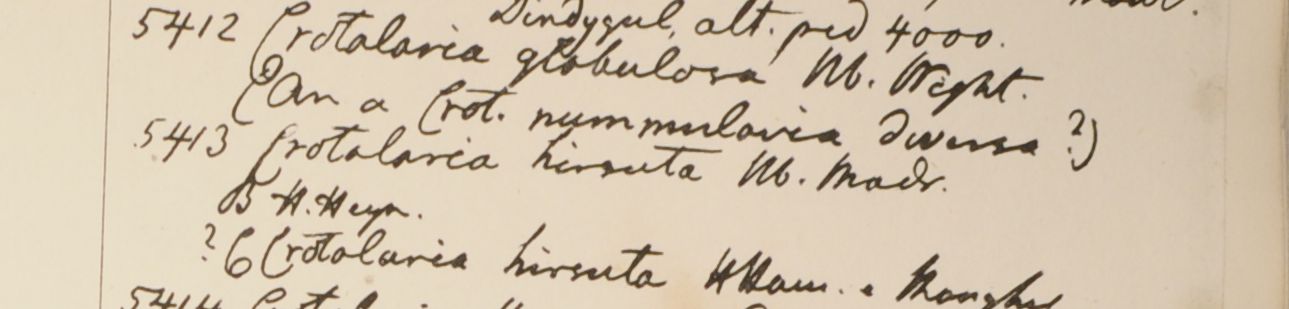 Dindygul, alt. ped 4000.
5412 Crotalaria globulosa Hb. Wight.
(An a Crot. nummularia diversa?)
5413 Crotalaria hirsuta Hb. Madr.
B H. Heyn.
? C Crotalaria hirsuta HHam. e
5414